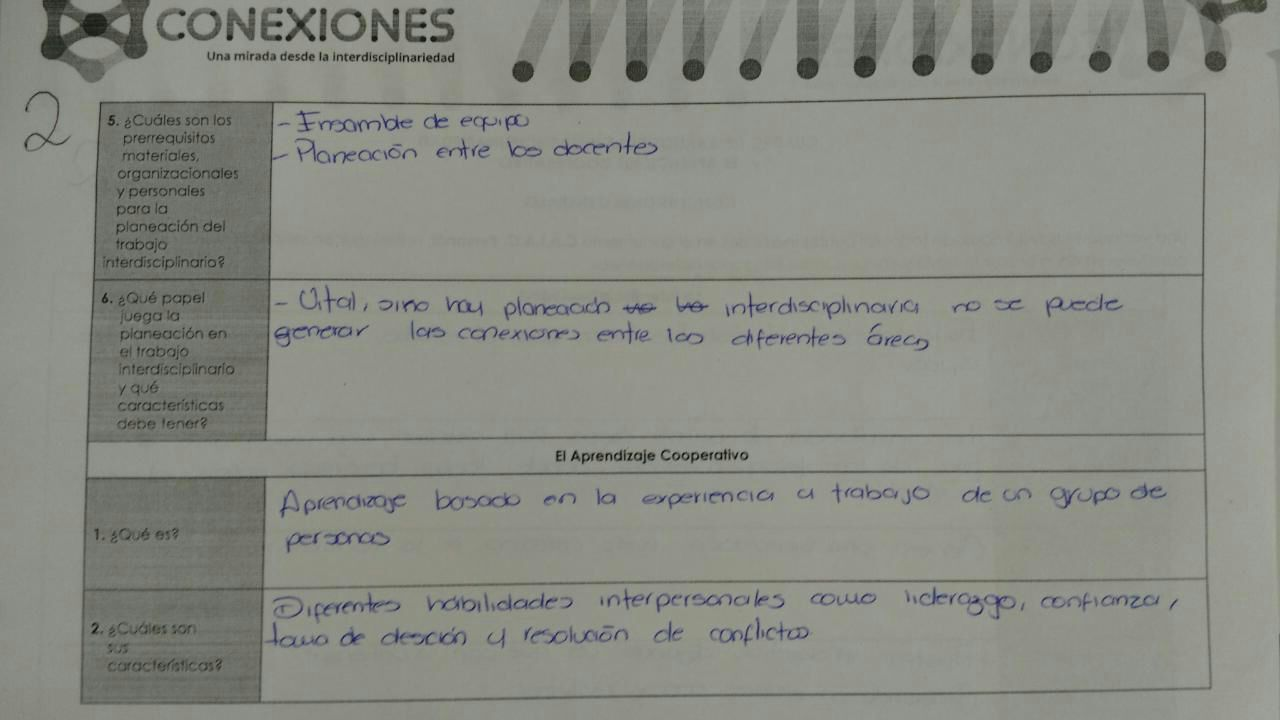 CONEXIONES
Una mirada desde la interdisciplinariedad
2
5. ¿Cuáles son los
prerrequisitos
materiales,
organizacionales
y personales
para la
planeación del
trabajo
interdisciplinario?
- Ensamble de equipo
- Planeación entre los docentes
6. ¿Qué papel
juega la
planeación en
el trabajo
interdisciplinario
y qué
características
debe tener?
- Vital, sino hay planeación interdisciplinaria no se puede
generar las conexiones entre las diferentes áreas
El Aprendizaje Cooperativo
1. ¿Qué es?
Aprendizaje basado en la experiencia y trabajo de un grupo de
personas
2. ¿Cuáles son
sus
características?
Diferentes habilidades interpersonales como liderazgo, confianza,
toma de desción y resolución de conflictos